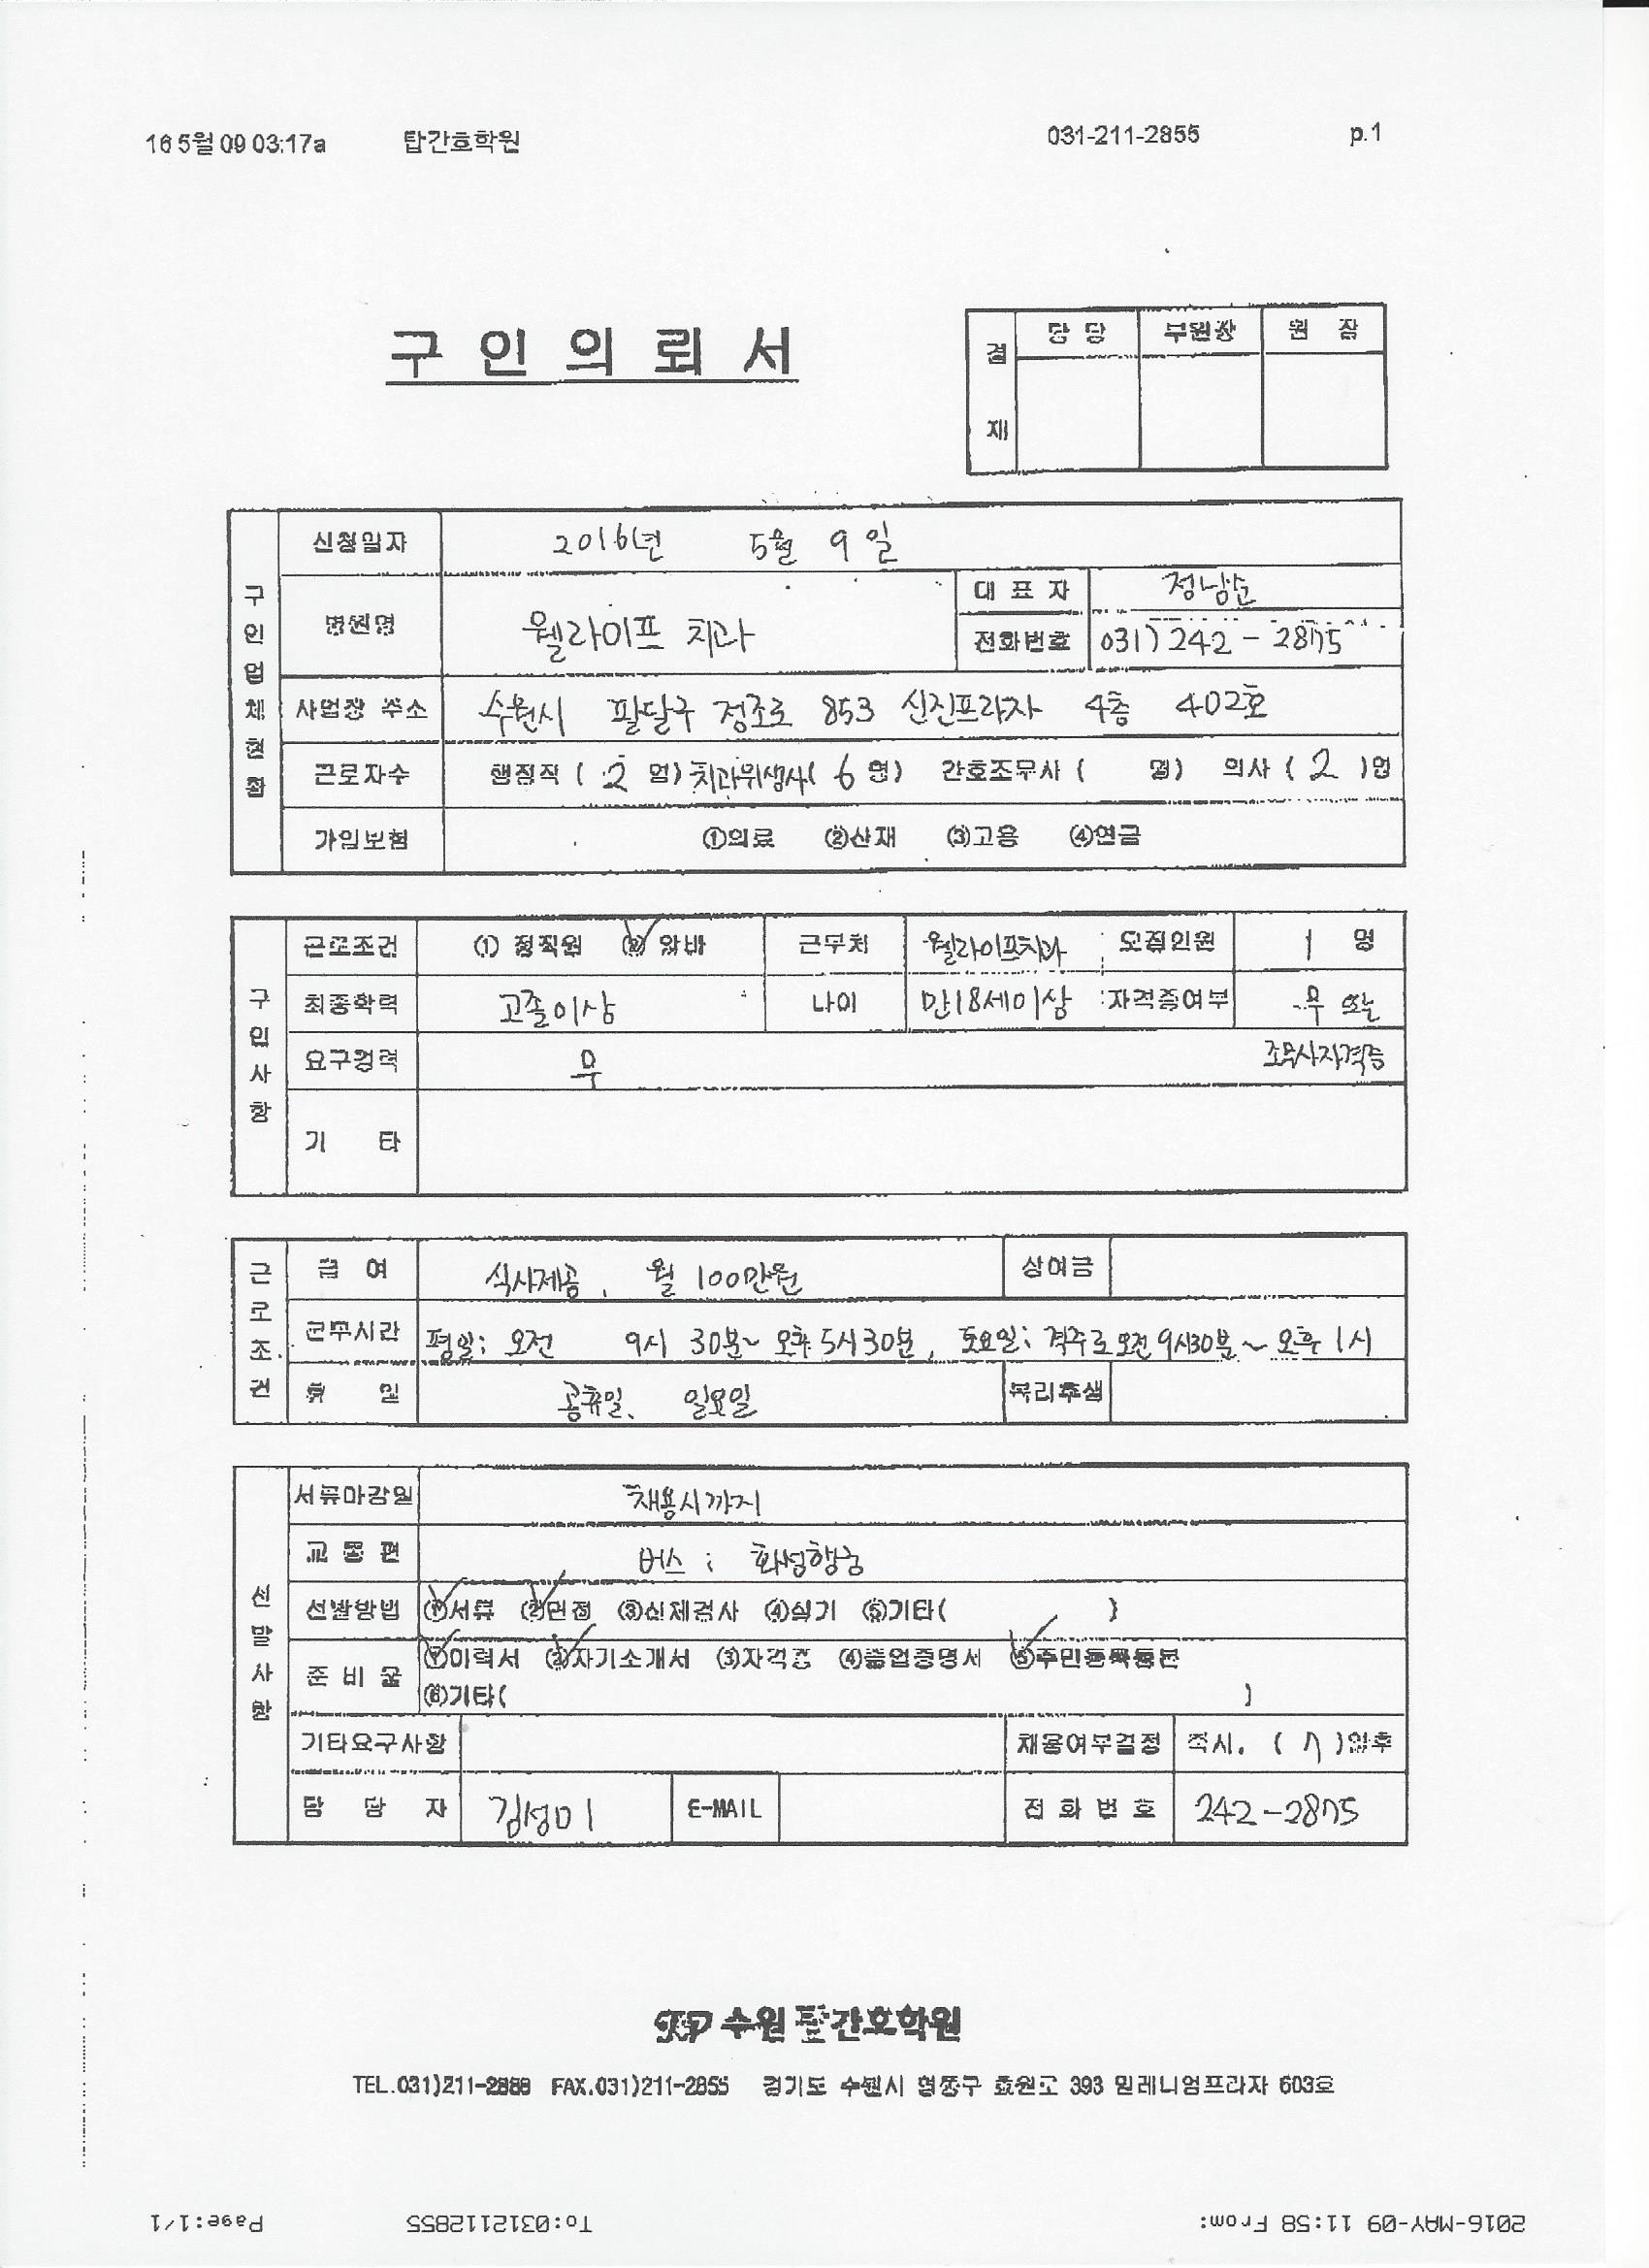 16 5월 09 03:17a 탑간호학원 031-211-2855 p.1
구 인 의 뢰 서
결 재 담 당 부원장 원 장
구 인 업 체 현 황
신청일자 2016년 5월 9일
병원명 웰라이프 치과 대 표 자 정남순
전화번호 031) 242-2875
사업장 주소 수원시 팔달구 정조로 853 신진프라자 4층 402호
근로자수 행정직 ( 2 명) 치과위생사( 6 명) 간호조무사 ( 명) 의사 ( 2 )명
가입보험 ①의료 ②산재 ③고용 ④연금
구 인 사 항
근로조건 ① 정직원 ② 알바 근무처 웰라이프치과 모집인원 1 명
최종학력 고졸이상 나이 만18세이상 자격증여부 무 또는
요구경력 무 조무사자격증
기 타
근 로 조 건
급 여 식사제공, 월 100만원 상여금
근무시간 평일: 오전 9시 30분~ 오후 5시30분, 토요일: 격주로 오전 9시30분 ~ 오후 1시
휴 일 공휴일, 일요일 복리후생
선 발 사 항
서류마감일 채용시까지
교 통 편 버스 : 화성행궁
선발방법 ①서류 ②면접 ③신체검사 ④실기 ⑤기타( )
준 비 물 ①이력서 ②자기소개서 ③자격증 ④졸업증명서 ⑤주민등록등본
⑥기타( )
기타요구사항 채용여부결정 즉시. ( 7 )일후
담 당 자 김성미 E-MAIL 전 화 번 호 242-2875
수원 탑간호학원
TEL.031)211-2888 FAX.031)211-2855 경기도 수원시 영통구 효원로 393 밀레니엄프라자 603호
2016-MAY-09 11:58 From: To:0312112855 Page:1/1